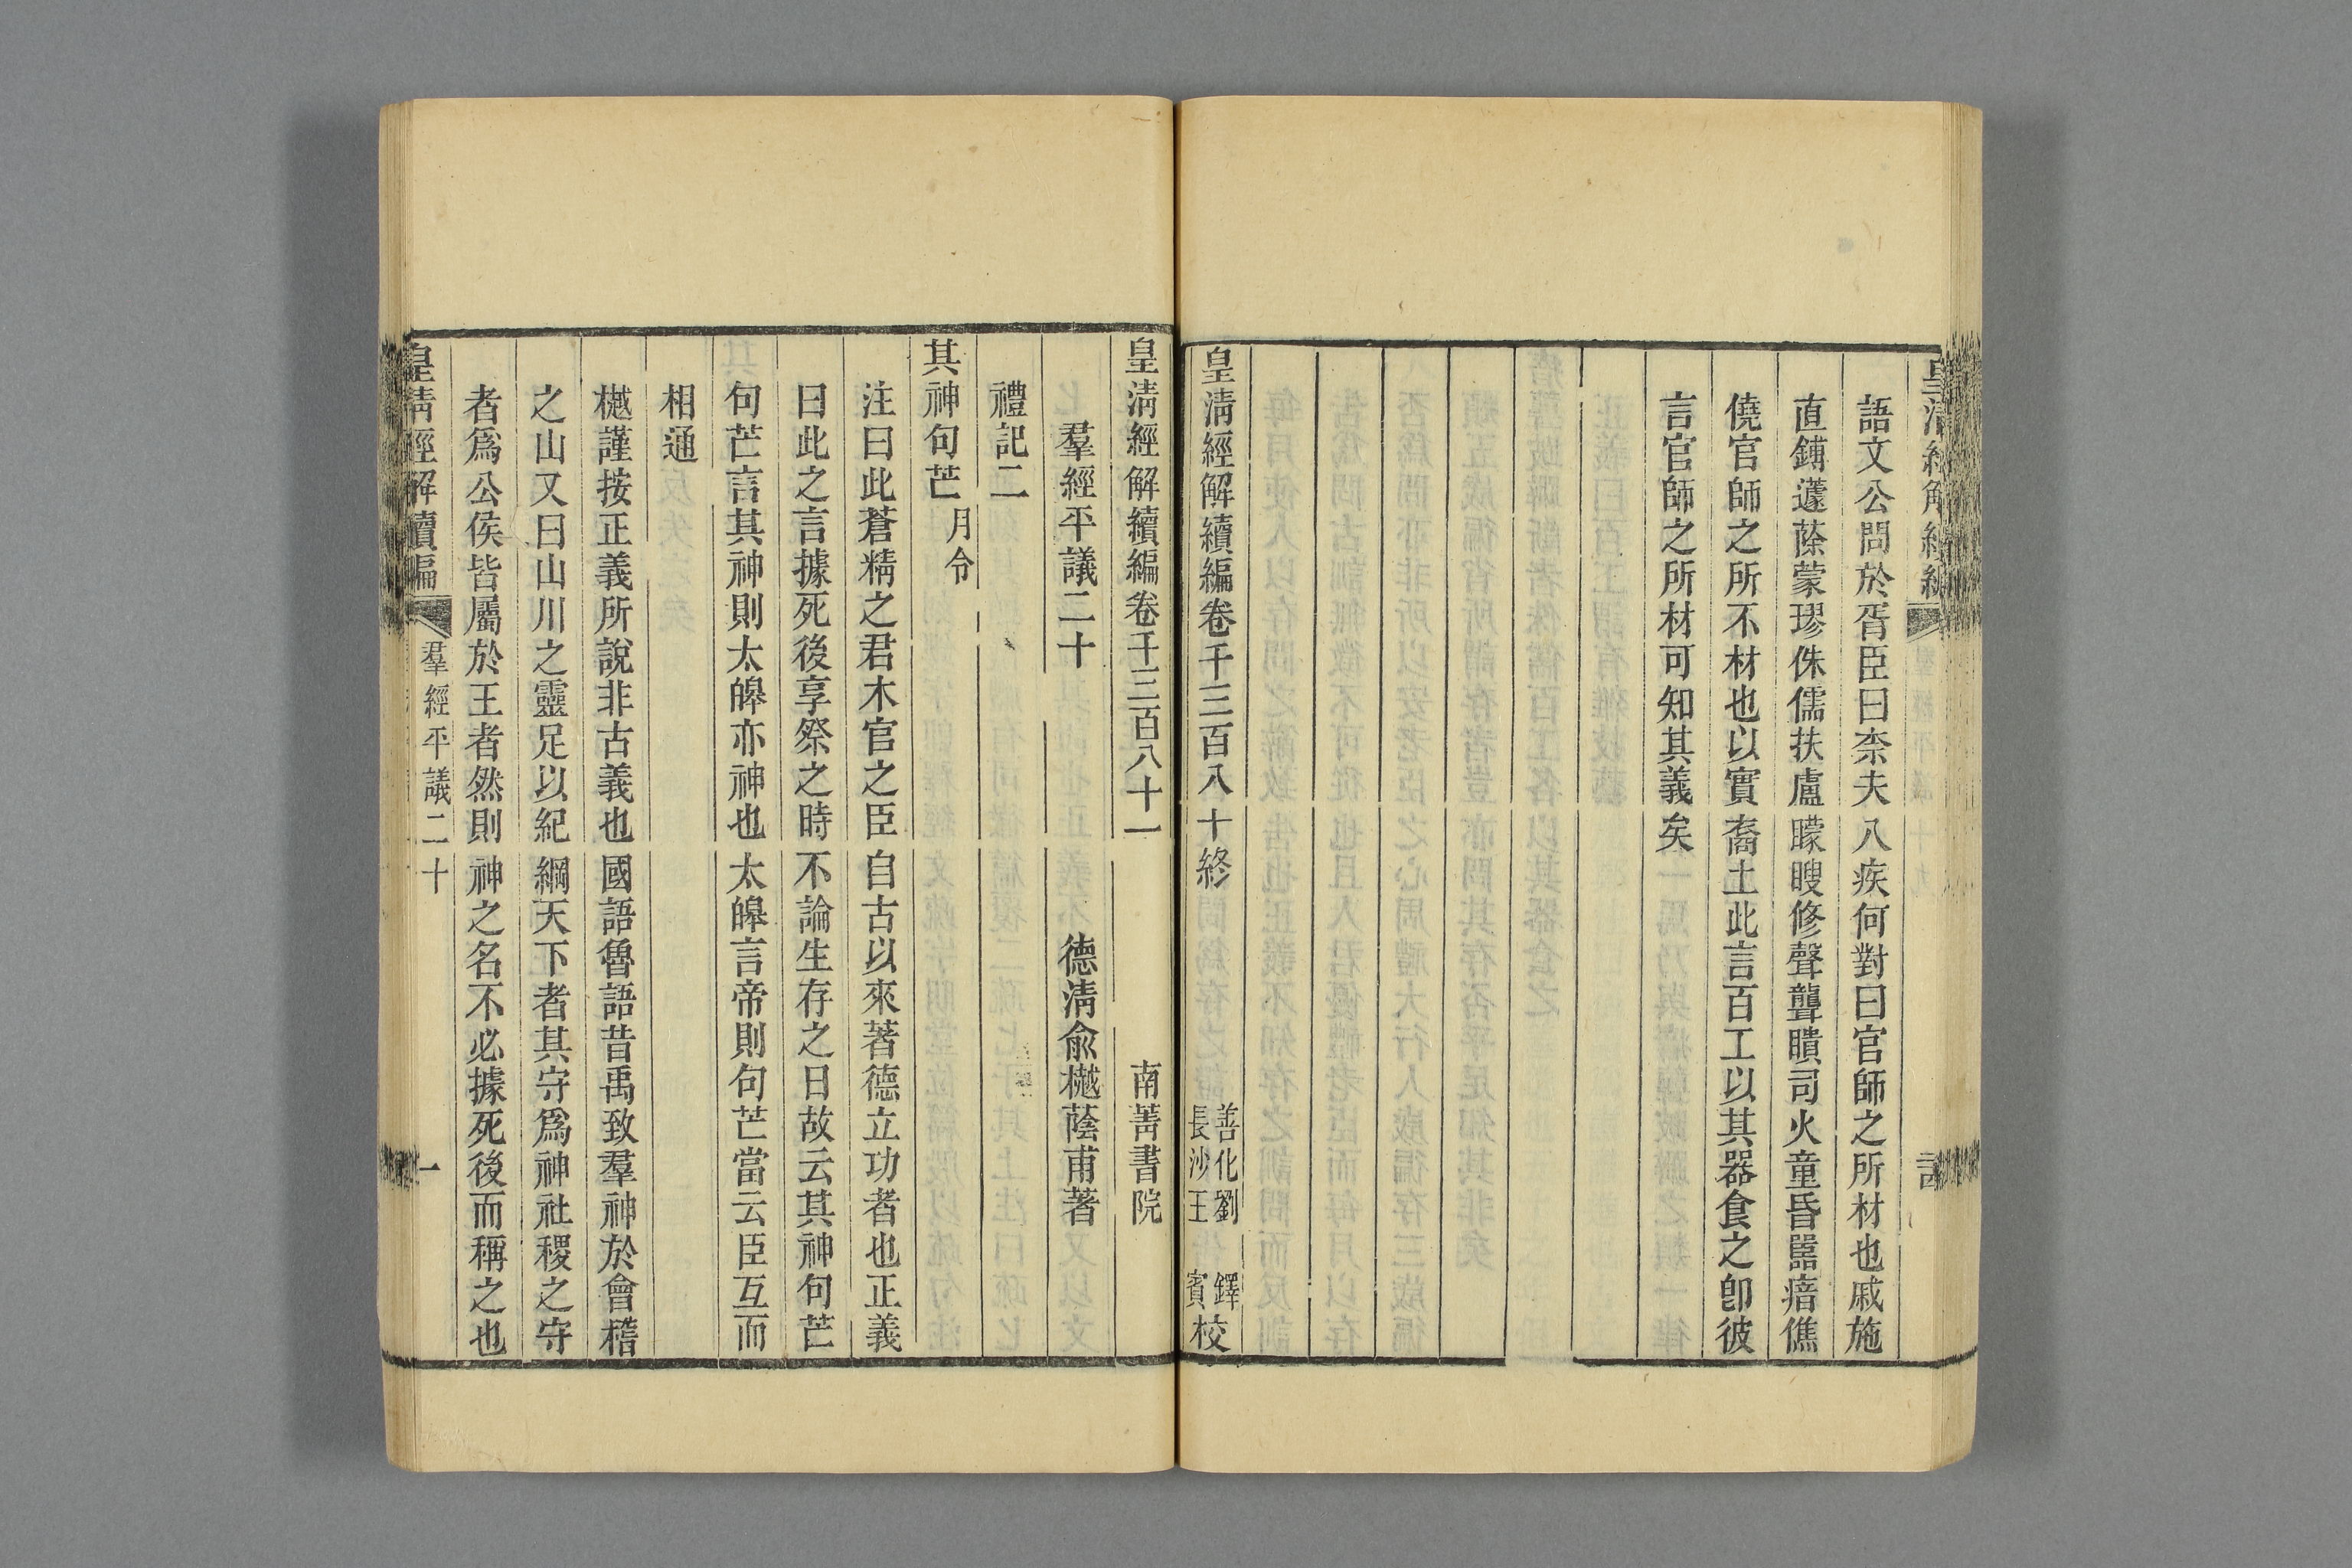 語文公問於胥臣曰柰夫八疾何對曰官師之所材也戚施
直鏄蘧蒢蒙璆侏儒扶盧矇瞍修聲聾聵司火童昏嚚瘖僬
僥官師之所不材也以實裔土此言百工以其器食之卽彼
言官師之所材可知其義矣
皇淸經解續編卷千三百八十終
善化劉鐸
長沙王賓校
皇淸經解續編卷千三百八十一
南菁書院
羣經平議二十
德淸俞樾蔭甫著
禮記二
其神句芒 月令
注曰此蒼精之君木官之臣自古以來著德立功者也正義
曰此之言據死後享祭之時不論生存之日故云其神句芒
句芒言其神則太皡亦神也太皡言帝則句芒當云臣互而
相通
樾謹按正義所說非古義也國語魯語昔禹致羣神於會稽
之山又曰山川之靈足以紀綱天下者其守爲神社稷之守
者爲公侯皆屬於王者然則神之名不必據死後而稱之也
皇淸經解續編
羣經平議二十
一